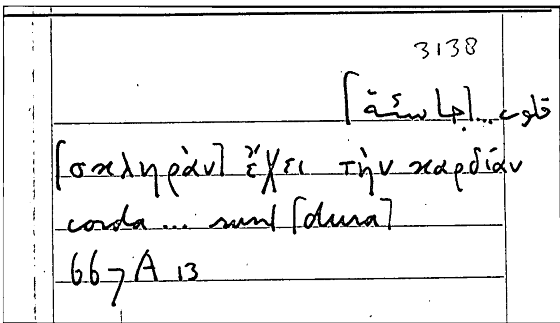 3138
قلوب...[جاسئة]
[σκληρὰν] ἔχει τὴν καρδίαν
corda... sunt [dura]
667 A 13